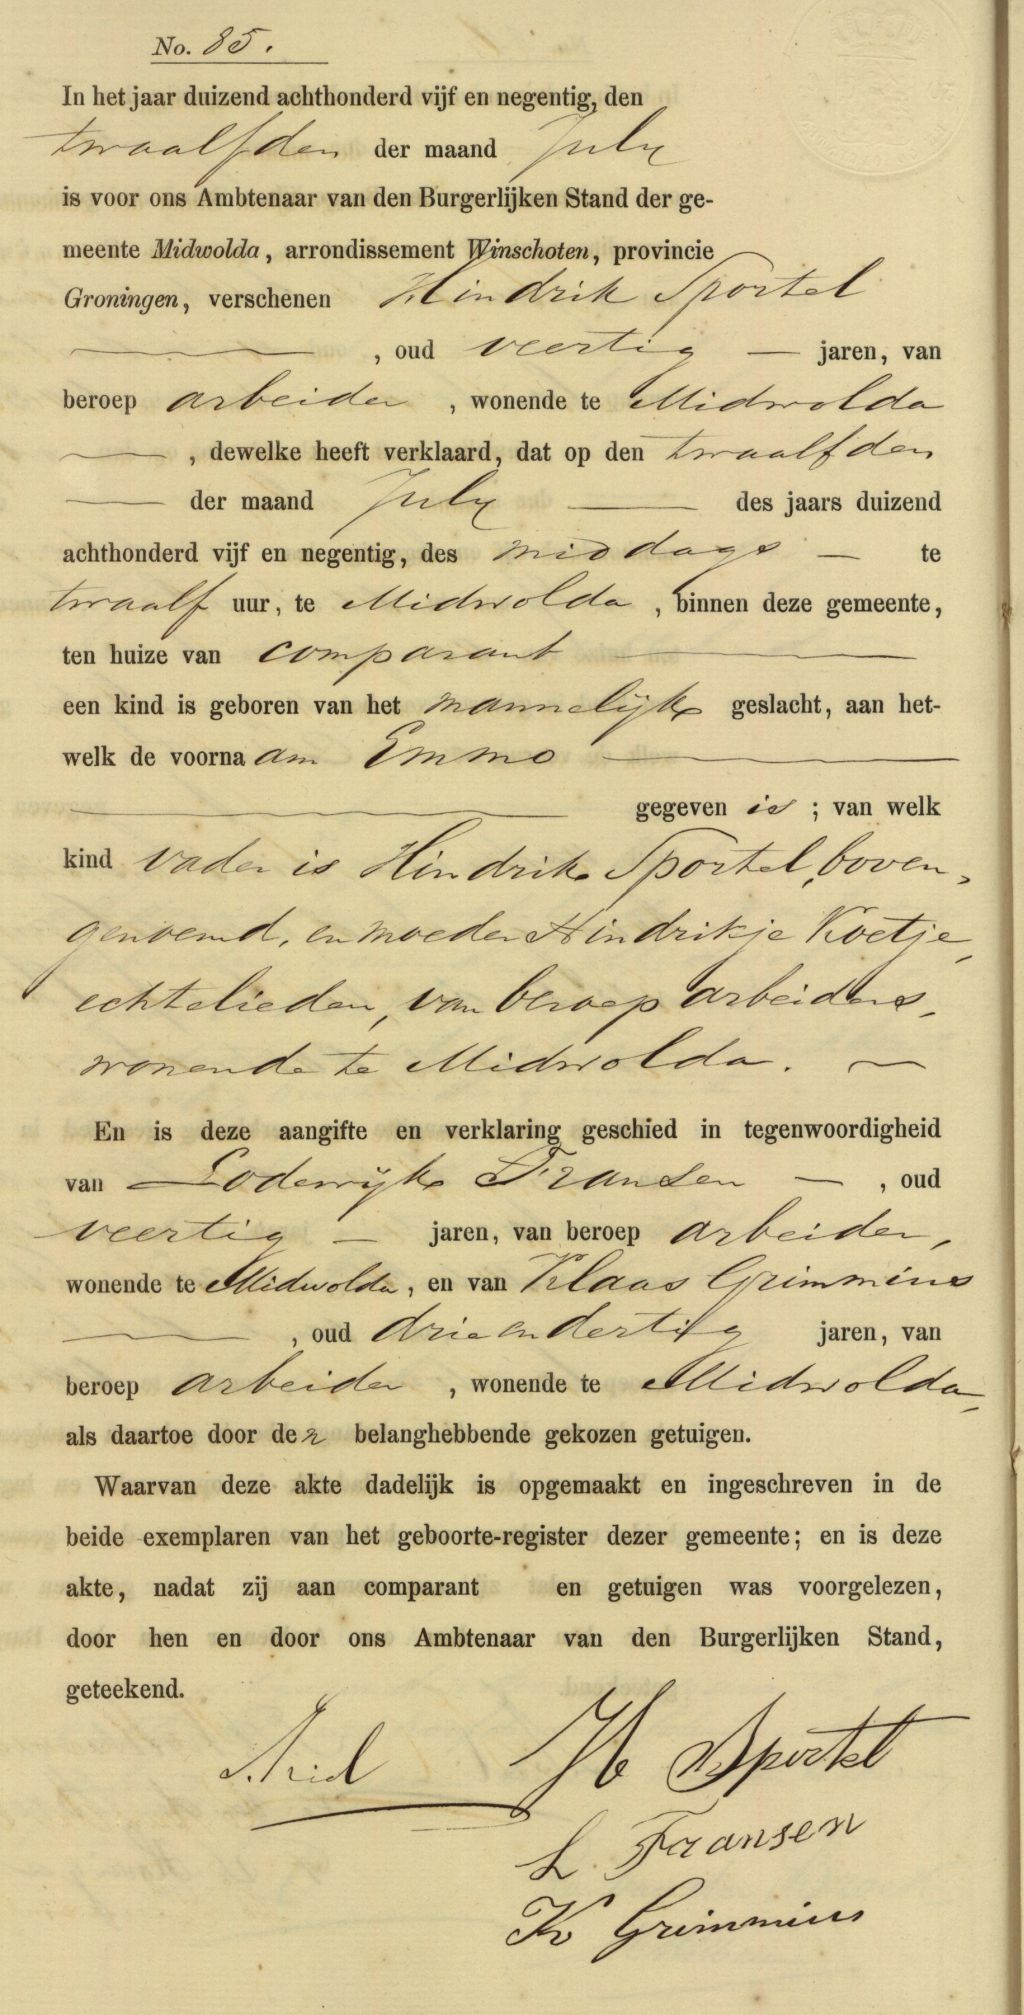 No. 85.
In het jaar duizend achthonderd vijf en negentig, den
twaalfden der maand July
is voor ons Ambtenaar van den Burgerlijken Stand der ge-
meente Midwolda, arrondissement Winschoten, provincie
Groningen, verschenen Hindrik Sportel
, oud veertig — jaren, van
beroep arbeider, wonende te Midwolda
—, dewelke heeft verklaard, dat op den twaalfden
— der maand July — des jaars duizend
achthonderd vijf en negentig, des middags — te
twaalf uur, te Midwolda, binnen deze gemeente,
ten huize van comparant —
een kind is geboren van het mannelijk geslacht, aan het-
welk de voornaam Emmo —
— gegeven is; van welk
kind vader is Hindrik Sportel, boven-
genoemd, en moeder Hindrikje Koetje,
echtelieden, van beroep arbeiders,
wonende te Midwolda. —
En is deze aangifte en verklaring geschied in tegenwoordigheid
van Lodewijk Fransen —, oud
veertig — jaren, van beroep arbeider,
wonende te Midwolda, en van Klaas Grimmius
—, oud drie en dertig jaren, van
beroep arbeider, wonende te Midwolda,
als daartoe door der belanghebbende gekozen getuigen.
Waarvan deze akte dadelijk is opgemaakt en ingeschreven in de
beide exemplaren van het geboorte-register dezer gemeente; en is deze
akte, nadat zij aan comparant en getuigen was voorgelezen,
door hen en door ons Ambtenaar van den Burgerlijken Stand,
geteekend.
H Sportel
L. Fransen
K Grimmius